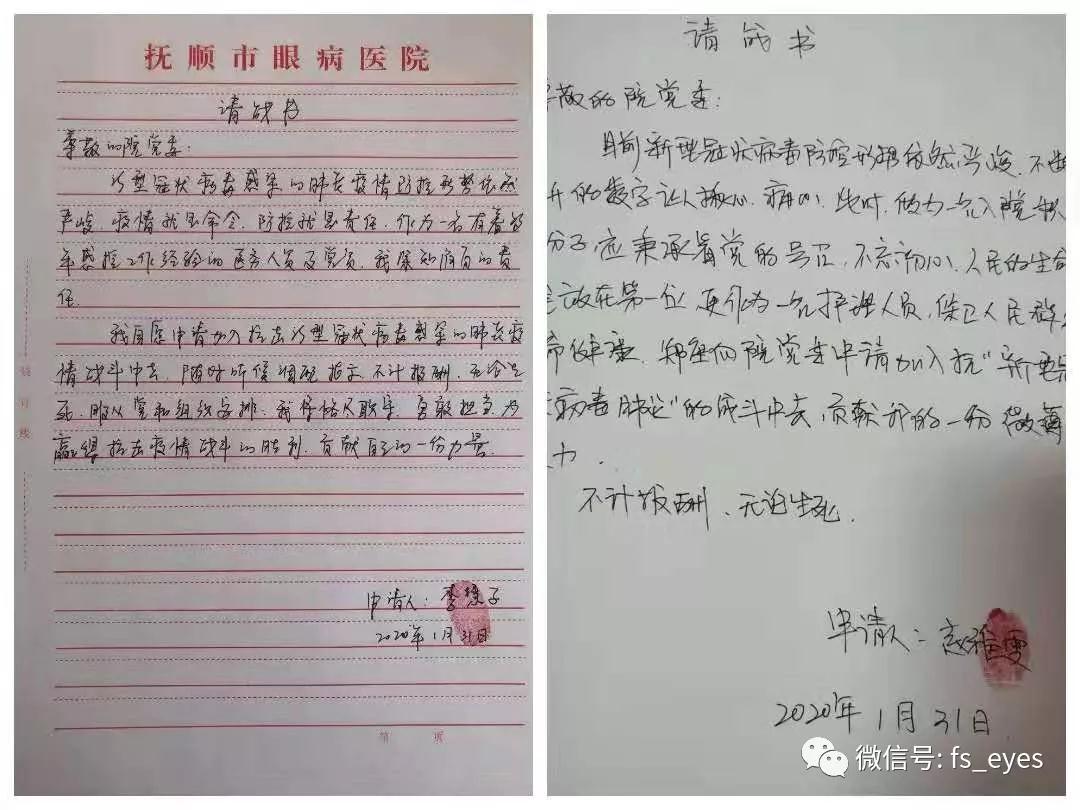 抚顺市眼病医院
请战书
尊敬的院党委：
新型冠状病毒感染的肺炎疫情防控形势依然
严峻，疫情就是命令，防控就是责任，作为一名有着多
年感控工作经验的医务人员及党员，我深知肩负的责
任。
我自愿申请加入抗击新型冠状病毒感染的肺炎疫
情战斗中去，随时听候调配指示，不计报酬，无论生
死，服从党和组织安排，我保恪尽职守，勇敢担当，为
赢得抗击疫情战斗的胜利，贡献自己的一份力量。
申请人：李慧子
2020年1月31日
第 页
装
订
线
请战书
尊敬的院党委：
目前新型冠状病毒防控形势依然严峻，不断
升的数字让人揪心、痛心，此时，做为一名入党积
分子，应秉承着党的号召，不忘初心，人民的生命
放在第一位，更作为一名护理人员，保卫人民群
命健康，郑重向院党委申请加入抗"新型冠
病毒肺炎"的战斗中去，贡献我的一份微薄
力。
不计报酬、无论生死。
申请人：赵雅雯
2020年1月31日
微信号: fs_eyes